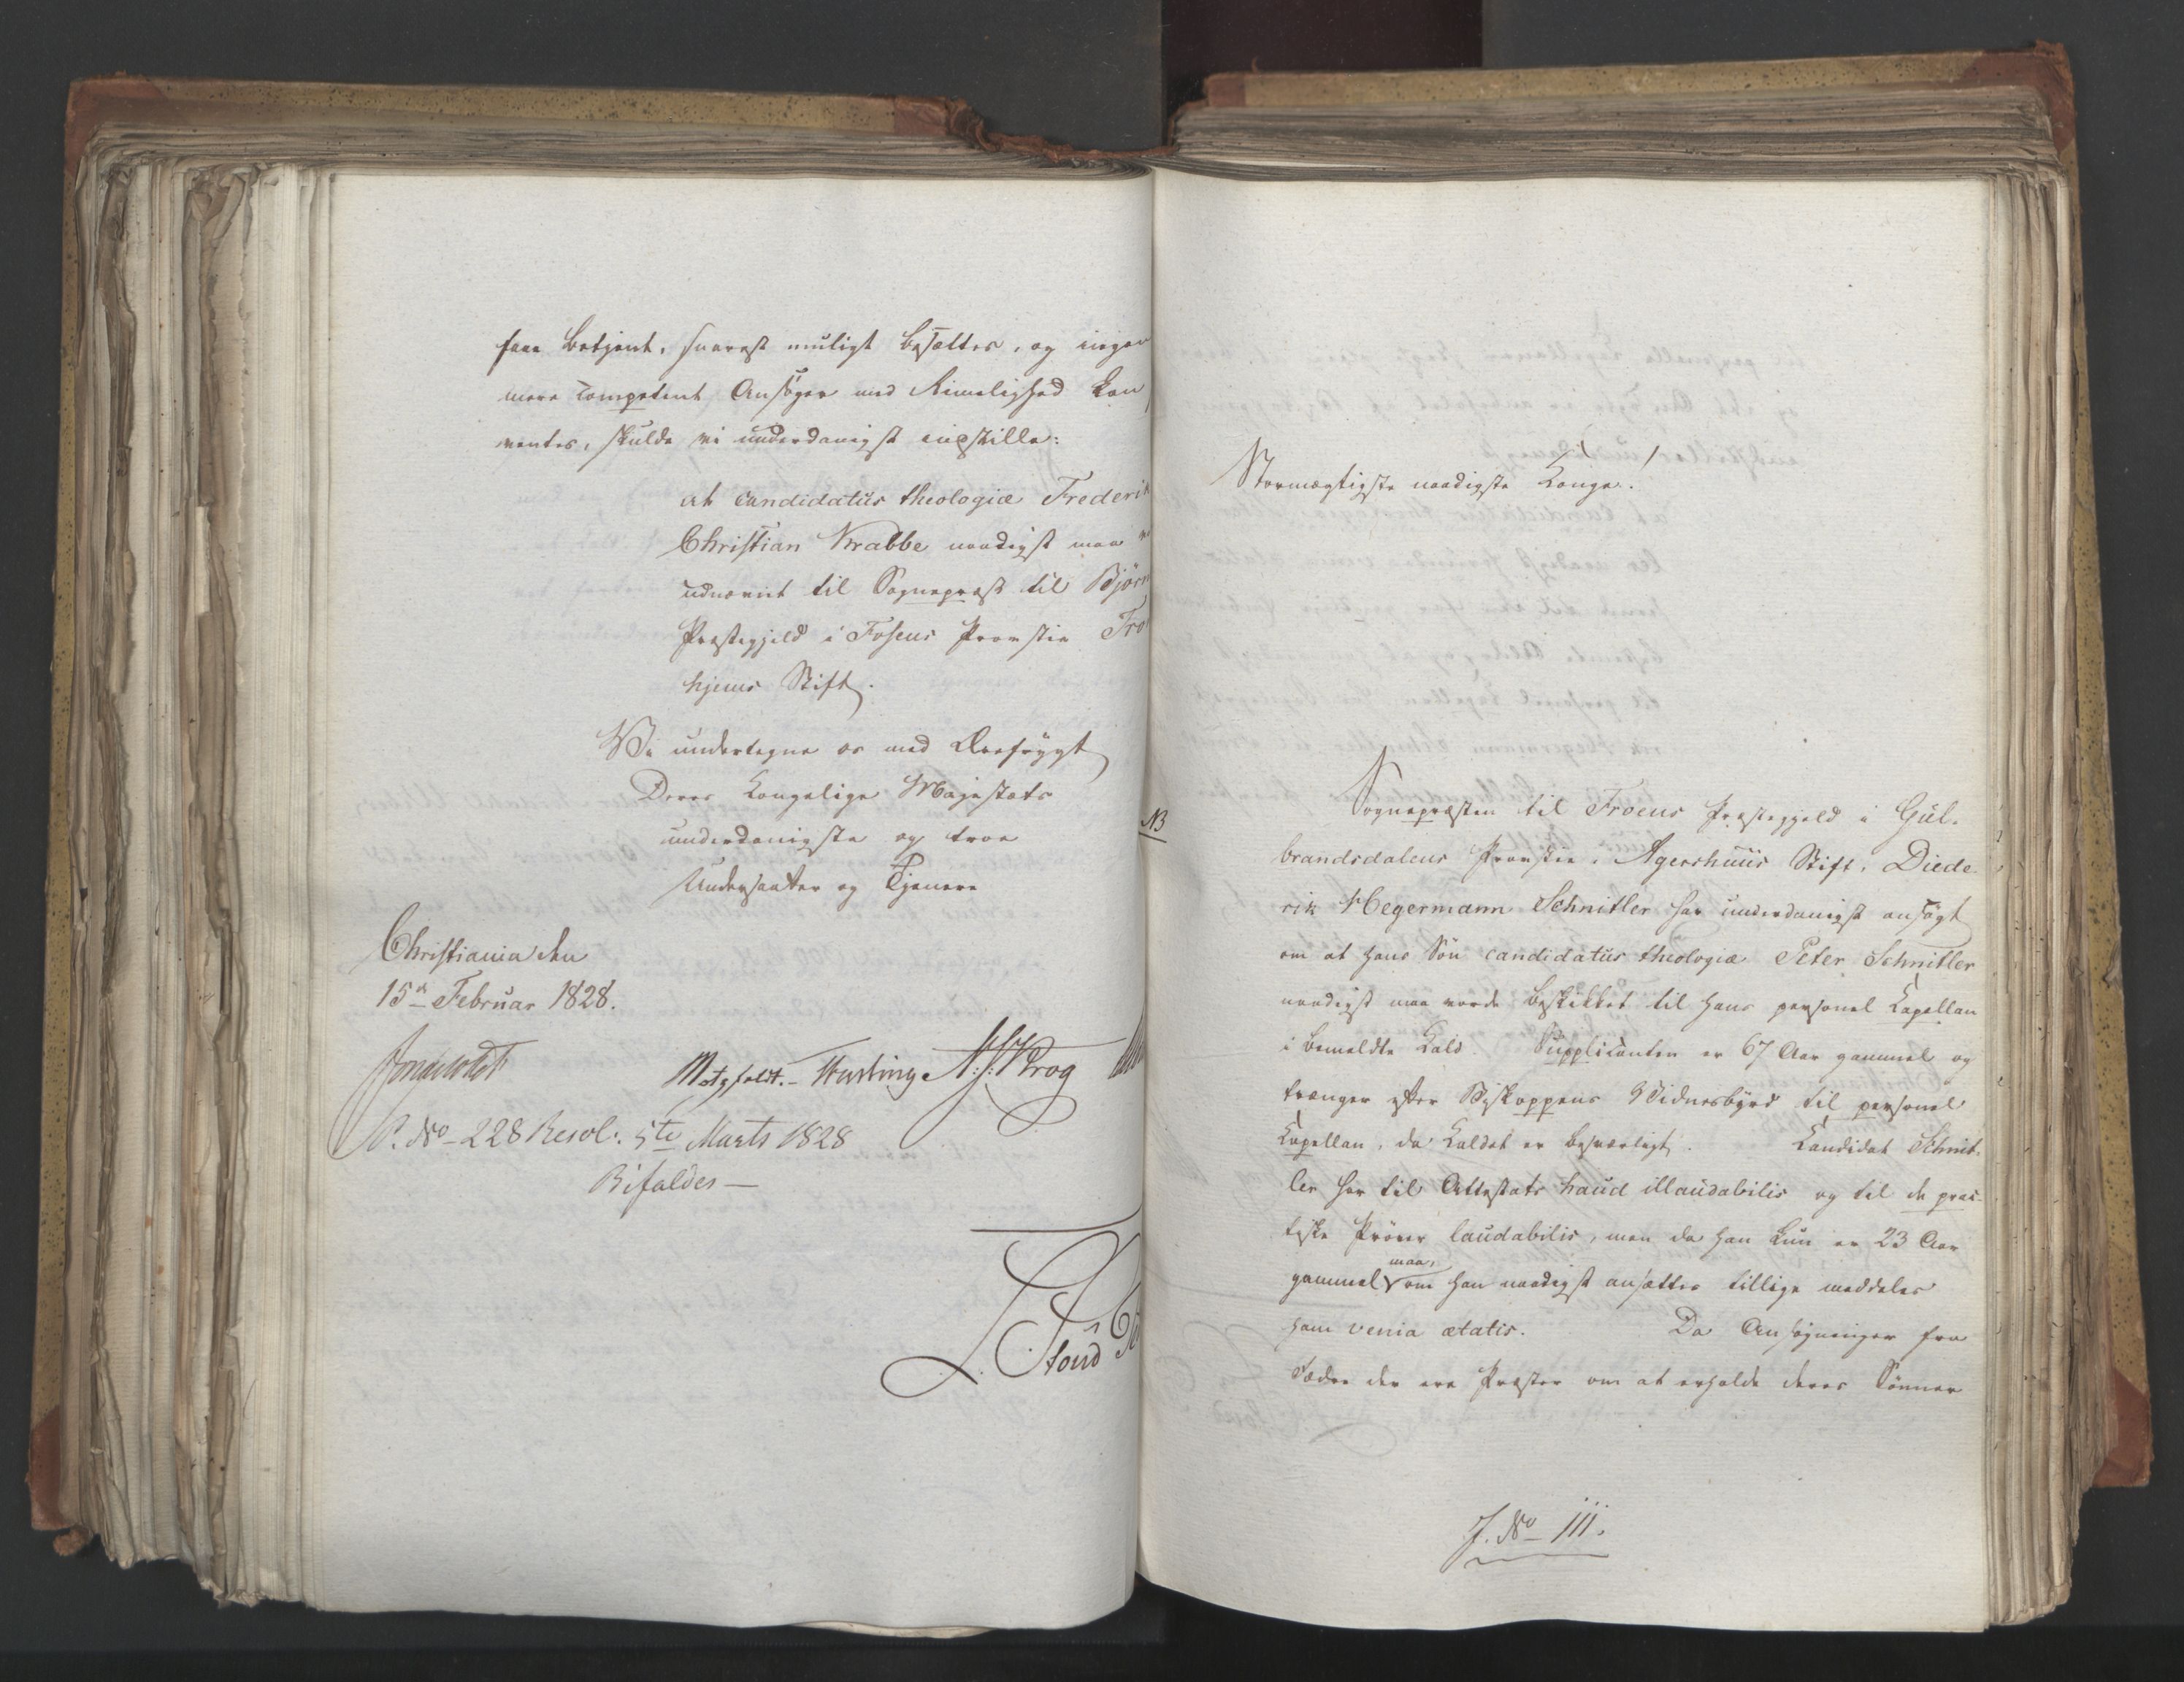 faae betjent, snarest muligt besættes, og ingen
mere competent Ansøger med Rimelighed kan
ventes, skulde vi underdanigst indstille:
at candidatus theologiæ Frederik
Christian Krabbe naadigst maa
udnævnt til Sognepræst til Bjørn
Præstegjeld i Fosens Provstie Tro
hjems Stift.
Vi undertegne os med Ærefrygt
Deres Kongelige Majestæts
underdanigste og troe
Undersaatter og Tjenere
Christiania den
15de Februar 1828.
Motzfeldt. N. J. Krog
P. No 228 Resol. 5te Marts 1828
Bifaldes —
NB
Stormægtigste naadigste Konge!
Sognepræsten til Froens Præstegjeld i Gul-
brandsdalens Provstie, Agershuus Stift, Diede-
rik Hegermann Schnitler har underdanigst ansøgt
om at hans Søn candidatus theologiæ Peter Schnitler
naadigst maa vorde beskikket til hans personel Kapellan
i bemeldte Kald. Supplicanten er 67 Aar gammel og
trænger efter Biskoppens Vidnesbyrd til personel
Kapellan, da Kaldet er besværligt. Kandidat Schnit-
ler har til Attestats haud illaudabilis og til de prac-
tiske Prøver laudabilis, men da han kun er 23 Aar
gammel maa, om han naadigst ansættes tillige meddeles
ham venia ætatis. Da Ansøgninger fra
Fædre der ere Præster om at erholde deres Sønner
J. No 111.